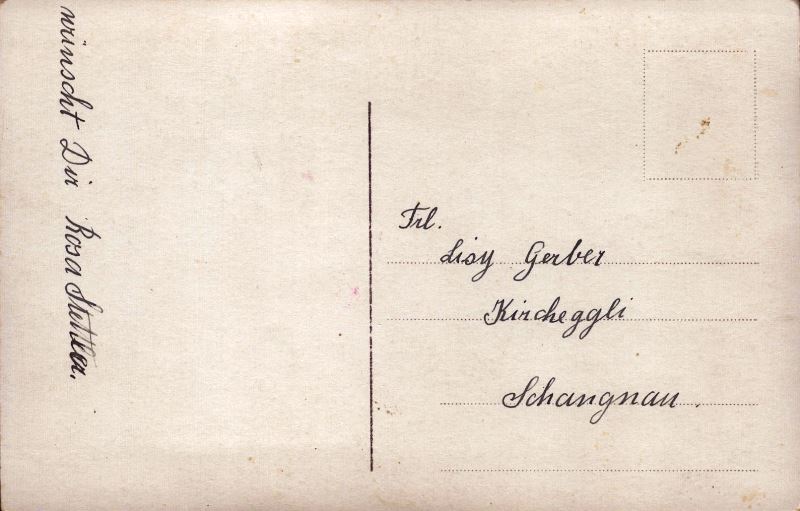 wünscht Dir Rosa Stettler.
Frl.
Lisy Gerber
Kircheggli
Schangnau.